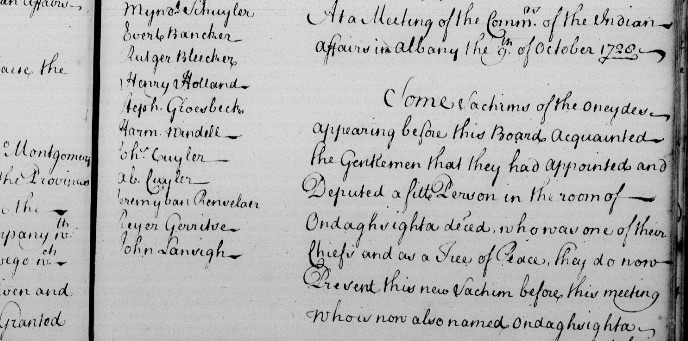 an affairs.
ause the
Montgomery
the Province
the
mpany wth
wego wch
iven and
Granted
Mynds. Schuyler
Evert Bancker
Rutger Bleecker
Henry Holland
Steph. Groesbeck
Harm. Wendell
Johs. Cuyler
ab. Cuyler
Jeremy van Renselaer
Reyer Gerritse
John Lansigh
At a Meeting of the Commrs. of the Indian
affairs in Albany the 9th. of October 1728
Some Sachims of the Oneydes
appearing before this Board acquainted
the Gentlemen that they had appointed and
Deputed a fitt Person in the room of
Ondaghsighta deced, who was one of their
Chiefs and as a Tree of Peace, they do now
Present this new Sachim before this meeting
who is now also named Ondaghsighta